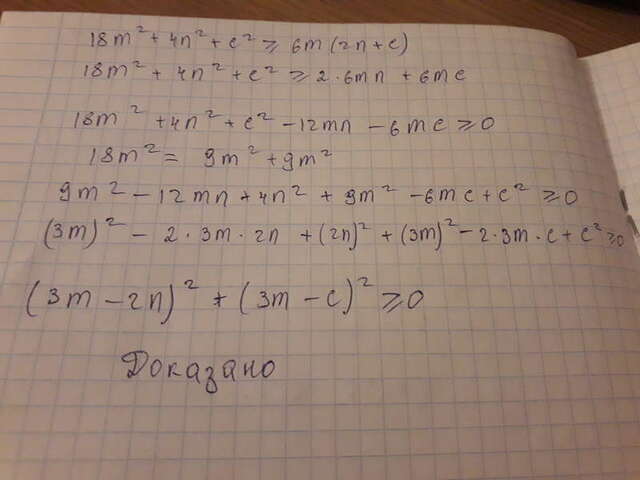 18m² + 4n² + c² ⩾ 6m (2n + c)
18m² + 4n² + c² ⩾ 2·6mn + 6mc
18m² + 4n² + c² - 12mn - 6mc ⩾ 0
18m² = 9m² + 9m²
9m² - 12mn + 4n² + 9m² - 6mc + c² ⩾ 0
(3m)² - 2·3m·2n + (2n)² + (3m)² - 2·3m·c + c² ⩾ 0
(3m - 2n)² + (3m - c)² ⩾ 0
Доказано